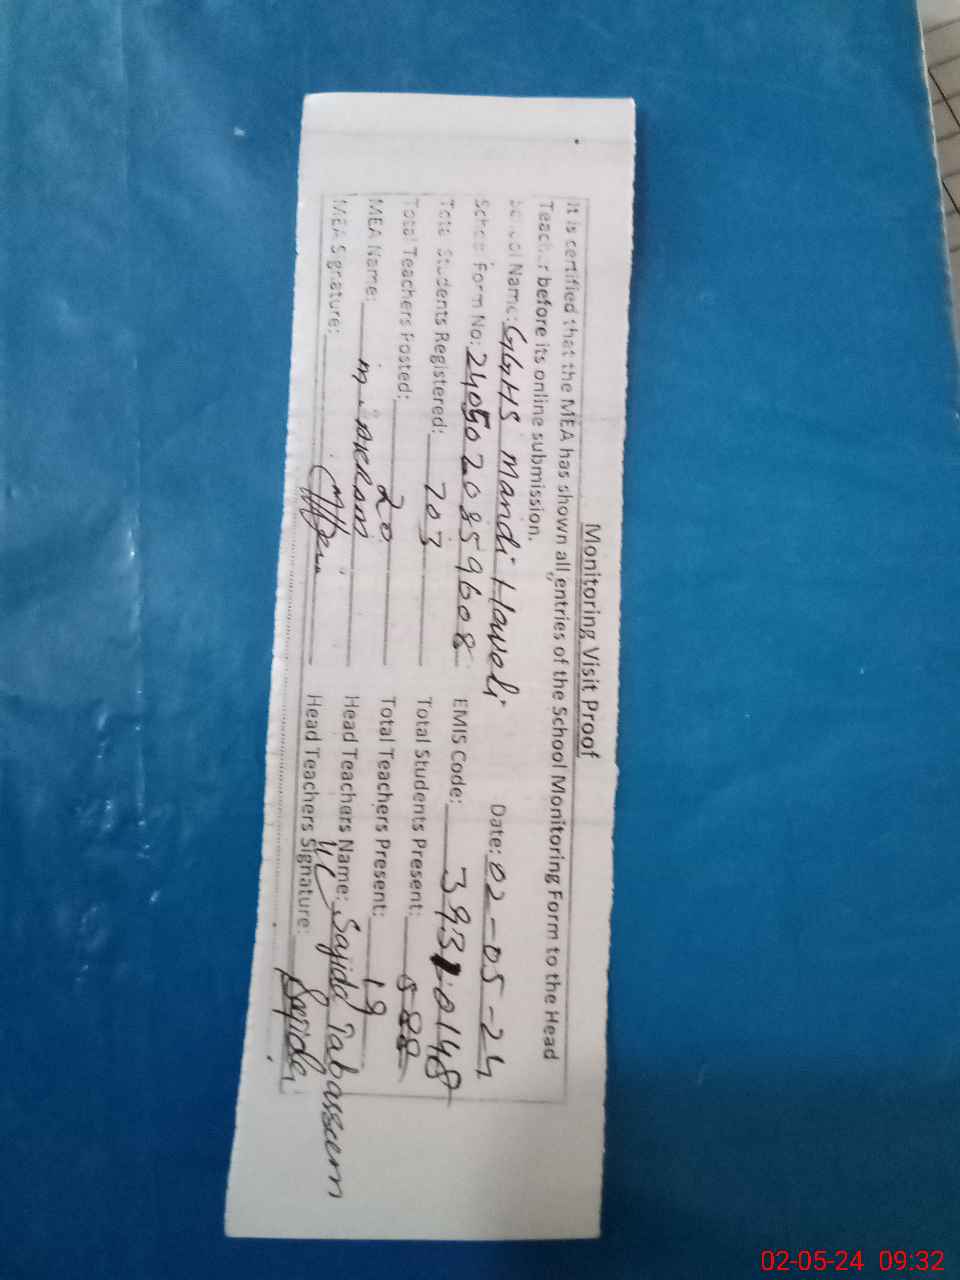 Monitoring Visit Proof
It is certified that the MEA has shown all entries of the School Monitoring Form to the Head
Teacher before its online submission.
School Name: GGHS Mandi Haveli Date: 02-05-24
School Form No: 2405020859608 EMIS Code: 39310148
Total Students Registered: 703 Total Students Present: 588
Total Teachers Posted: 20 Total Teachers Present: 19
MEA Name: M. Akram Head Teachers Name: Sajida Tabasscem
MEA Signature: Head Teachers Signature: Sajida
02-05-24 09:32